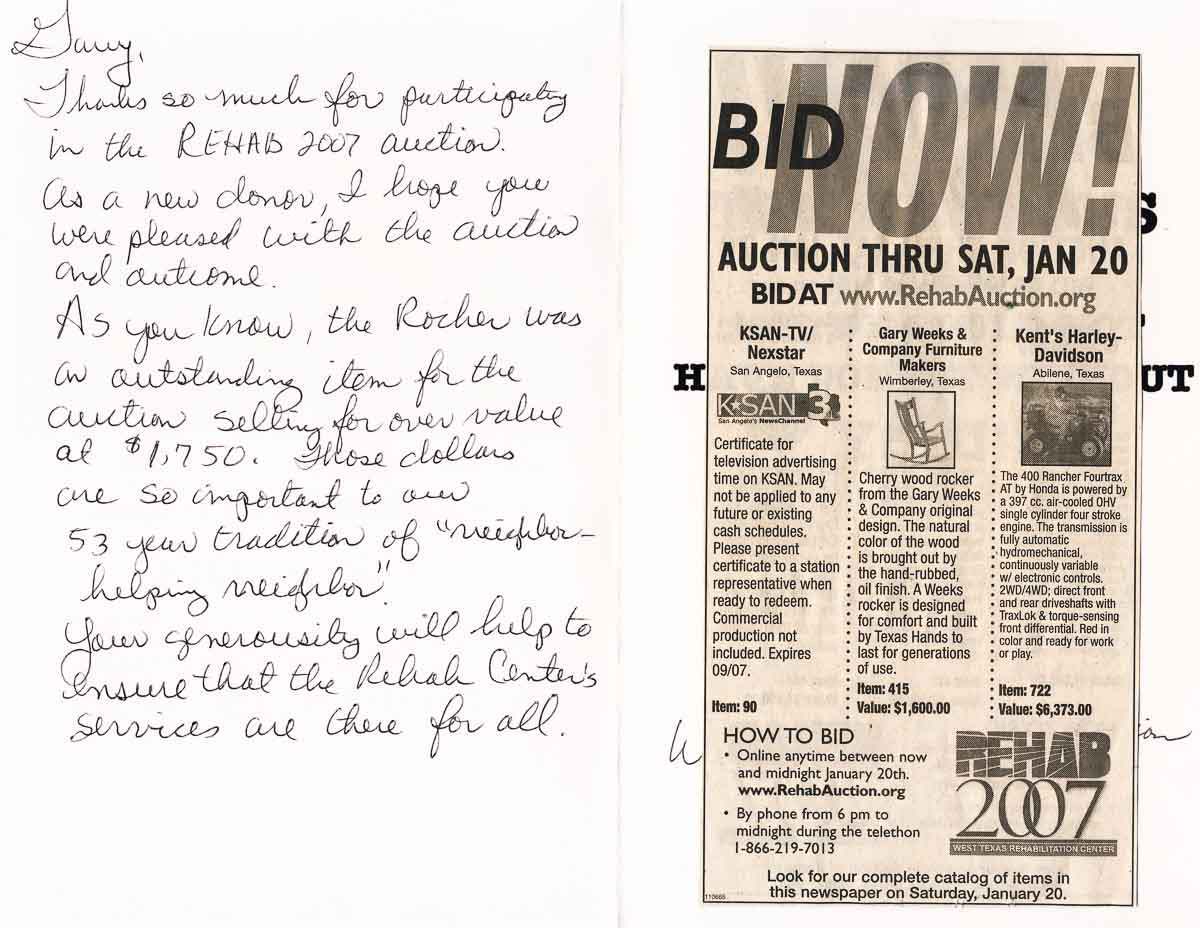 Garry,
Thanks so much for participating
in the REHAB 2007 auction.
As a new donor, I hope you
were pleased with the auction
and outcome.
As you know, the Rocker was
an outstanding item for the
auction selling for over value
at $1,750. Those dollars
are so important to our
53 year tradition of "neighbor-
helping neighbor".
Your generousity will help to
ensure that the Rehab Center's
services are there for all.
BID NOW!
AUCTION THRU SAT, JAN 20
BID AT www.RehabAuction.org
KSAN-TV/
Nexstar
San Angelo, Texas
KSAN 3
San Angelo's NewsChannel
Certificate for
television advertising
time on KSAN. May
not be applied to any
future or existing
cash schedules.
Please present
certificate to a station
representative when
ready to redeem.
Commercial
production not
included. Expires
09/07.
Item: 90
Gary Weeks &
Company Furniture
Makers
Wimberley, Texas
Cherry wood rocker
from the Gary Weeks
& Company original
design. The natural
color of the wood
is brought out by
the hand-rubbed,
oil finish. A Weeks
rocker is designed
for comfort and built
by Texas Hands to
last for generations
of use.
Item: 415
Value: $1,600.00
Kent's Harley-
Davidson
Abilene, Texas
The 400 Rancher Fourtrax
AT by Honda is powered by
a 397 cc. air-cooled OHV
single cylinder four stroke
engine. The transmission is
fully automatic
hydromechanical,
continuously variable
w/ electronic controls.
2WD/4WD; direct front
and rear driveshafts with
TraxLok & torque-sensing
front differential. Red in
color and ready for work
or play.
Item: 722
Value: $6,373.00
HOW TO BID
• Online anytime between now
and midnight January 20th.
www.RehabAuction.org
• By phone from 6 pm to
midnight during the telethon
1-866-219-7013
REHAB
2007
WEST TEXAS REHABILITATION CENTER
Look for our complete catalog of items in
this newspaper on Saturday, January 20.
S
H UT